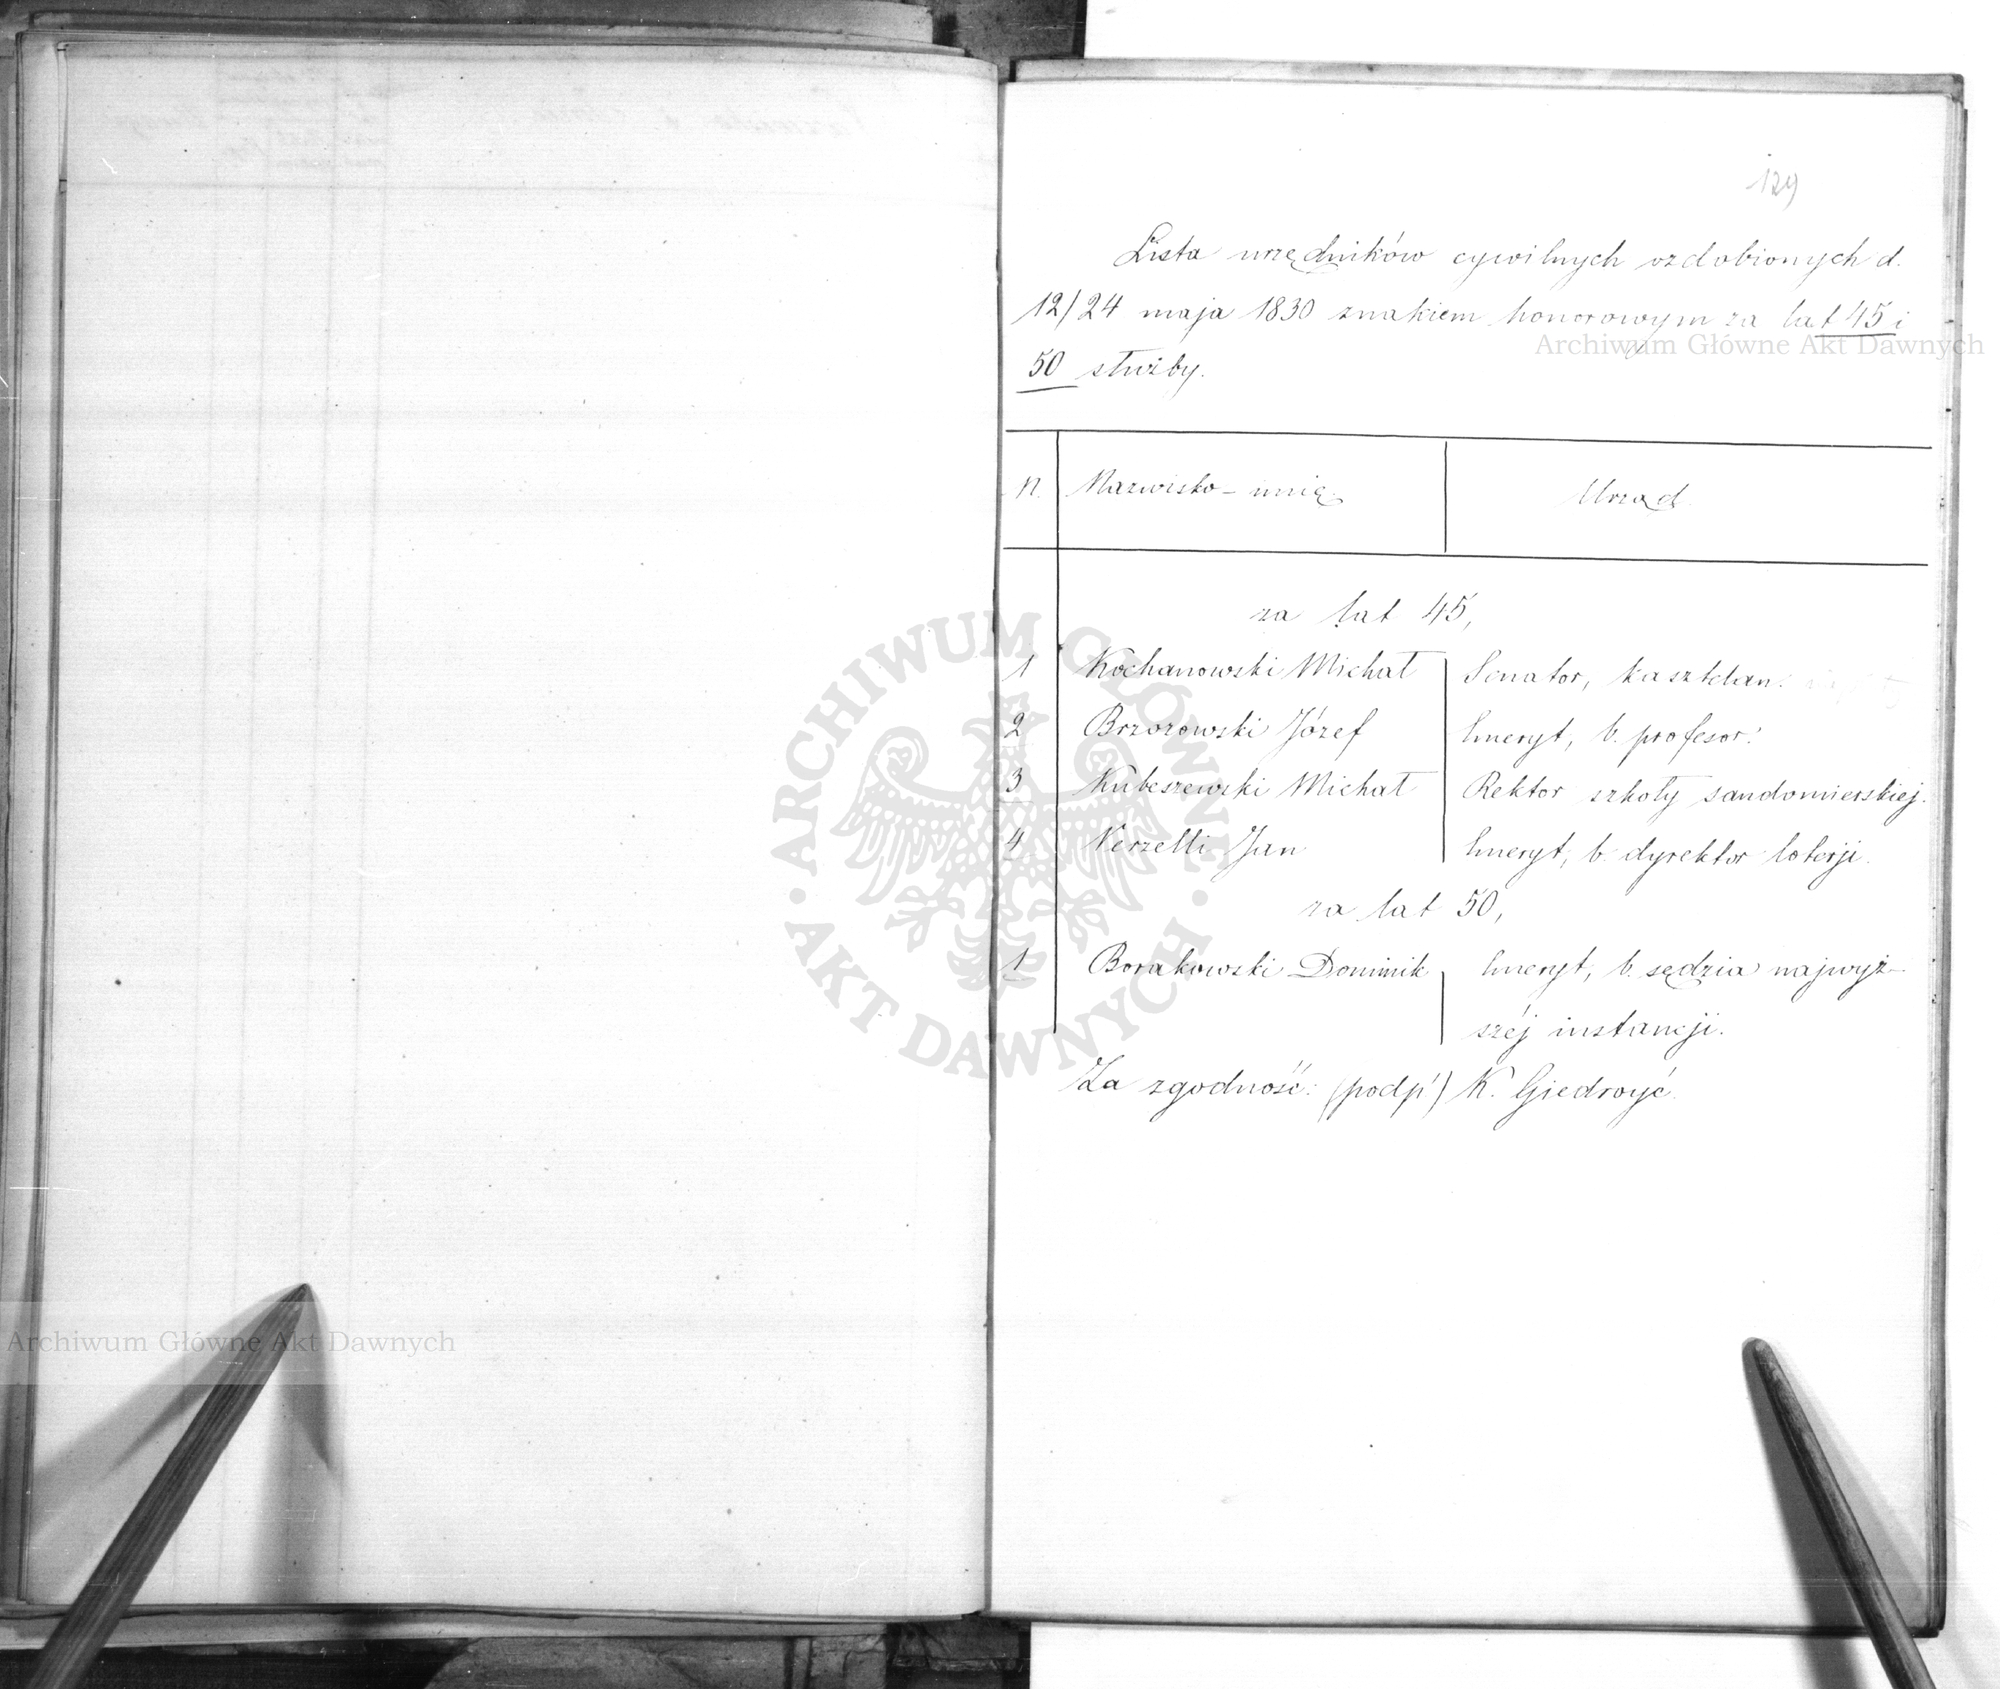 129
Lista urzędników cywilnych ozdobionych d.
12/24 maja 1830 znakiem honorowym za lat 45 i
50 służby.
N. Nazwisko – imię. Urząd.
za lat 45,
1 Kochanowski Michał Senator, kasztelan.
2 Brzozowski Józef Emeryt, b. profesor.
3 Kubeszewski Michał Rektor szkoły sandomierskiej.
4 Jan Emeryt, b. dyrektor loterji.
za lat 50,
1 Borakowski Dominik Emeryt, b. sędzia najwyż-
széj instancji.
Za zgodność: (podp) K. Giedroyć.
Archiwum Główne Akt Dawnych
Archiwum Główne Akt Dawnych
ARCHIWUM GŁÓWNE
AKT DAWNYCH